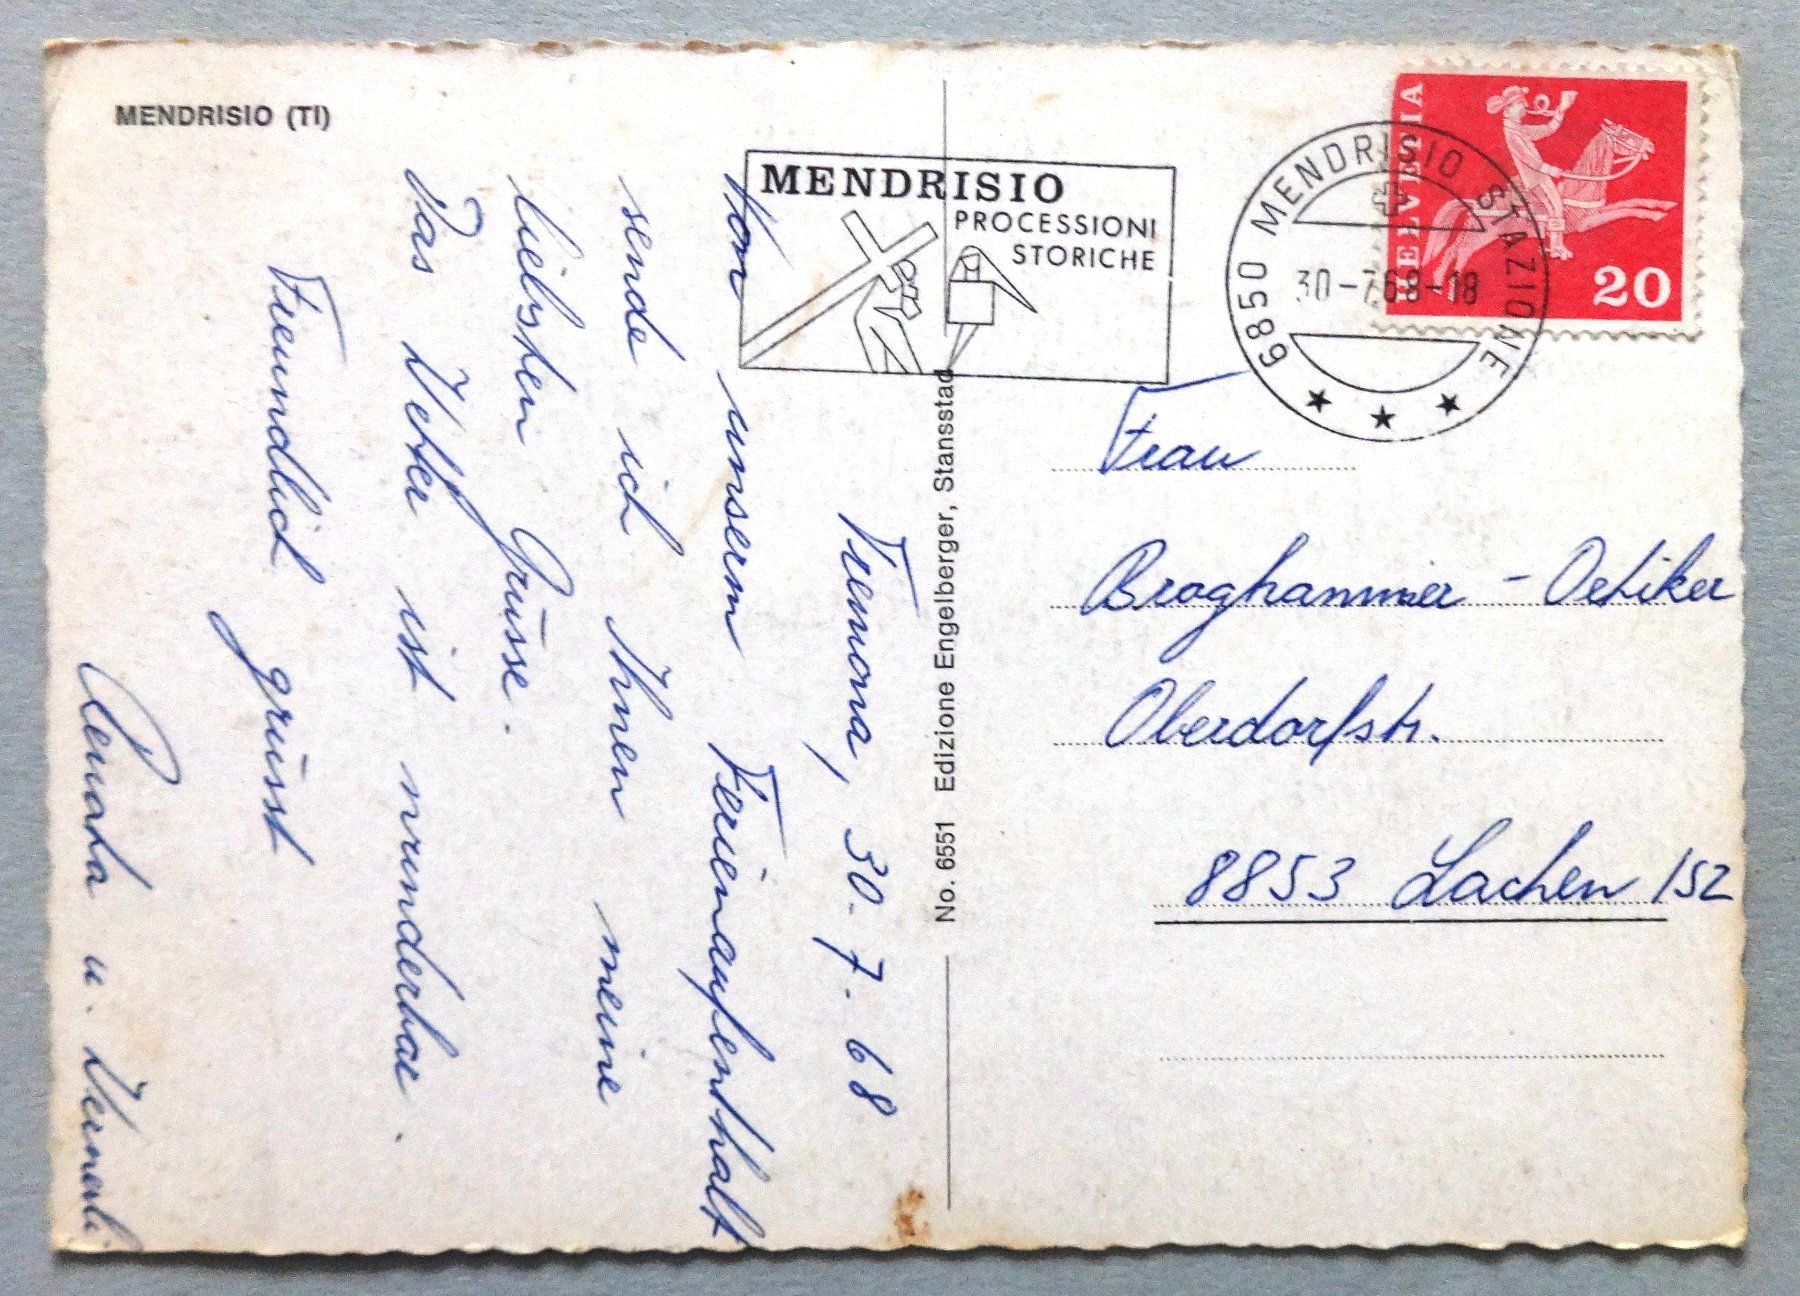 MENDRISIO (TI)
Tremona, 30. 7. 68
Von unserm Ferienaufenthalt
sende ich Ihnen meine
liebsten Grüsse.
Das Wetter ist wunderbar.
Freundlich grüsst
Renata u. Werneli
No. 6551 Edizione Engelberger, Stansstad
MENDRISIO
PROCESSIONI
STORICHE
6850 MENDRISIO STAZIONE
30-7.68-18
HELVETIA
20
Frau
Broghammer - Oetiker
Oberdorfstr.
8853 Lachen /SZ